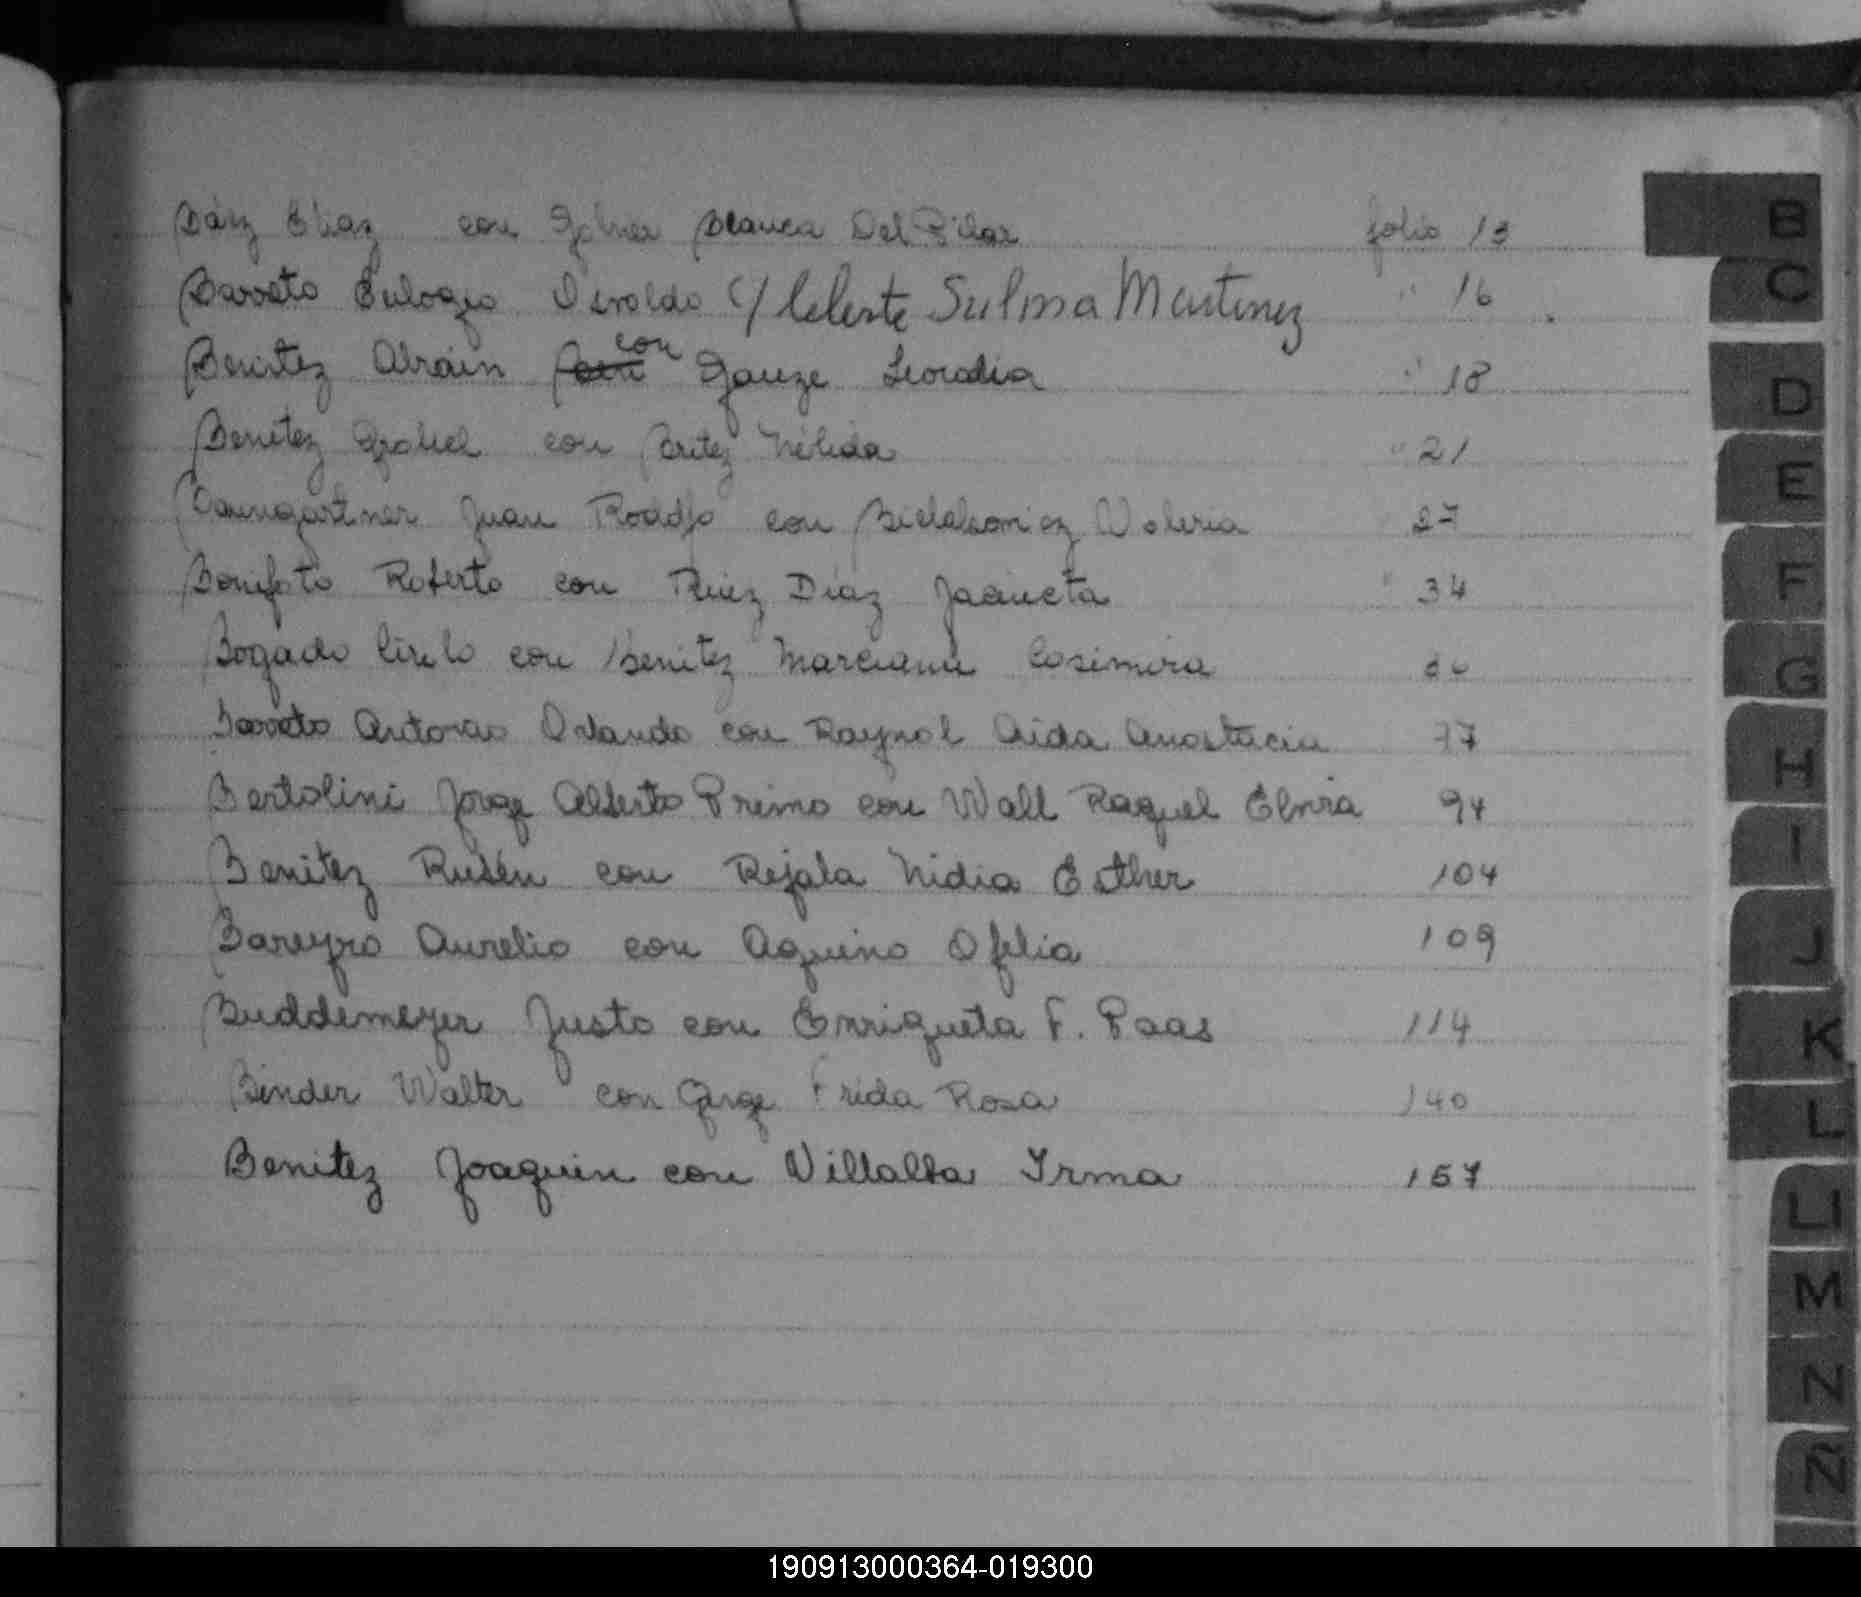 Báez con Blanca Del Pilar folio 13
Barreto Eulogio Osvaldo c/ Celeste Sulma Martinez " 16
Benitez con Gauze Leocadia " 18
Benitez con Britez Nélida " 21
Baumgartner Juan Rodolfo con Valeria 27
Bonifato Roberto con Ruiz Diaz Jacinta " 34
Bogado Cirilo con Benitez Marciana Casimira
Barreto Antonio Orlando con Raynol Aida Anastacia 77
Bertolini Jorge Alberto Primo con Wall Raquel Elvira 94
Benitez Rubén con Rejala Nidia Esther 104
Bareyro Aurelio con Aquino Ofelia 109
Buddemeyer Justo con Enriqueta F. Paas 114
Binder Walter con Frida Rosa 140
Benitez Joaquin con Villalba Irma 157
B
C
D
E
F
G
H
I
J
K
L
Ll
M
N
Ñ
190913000364-019300